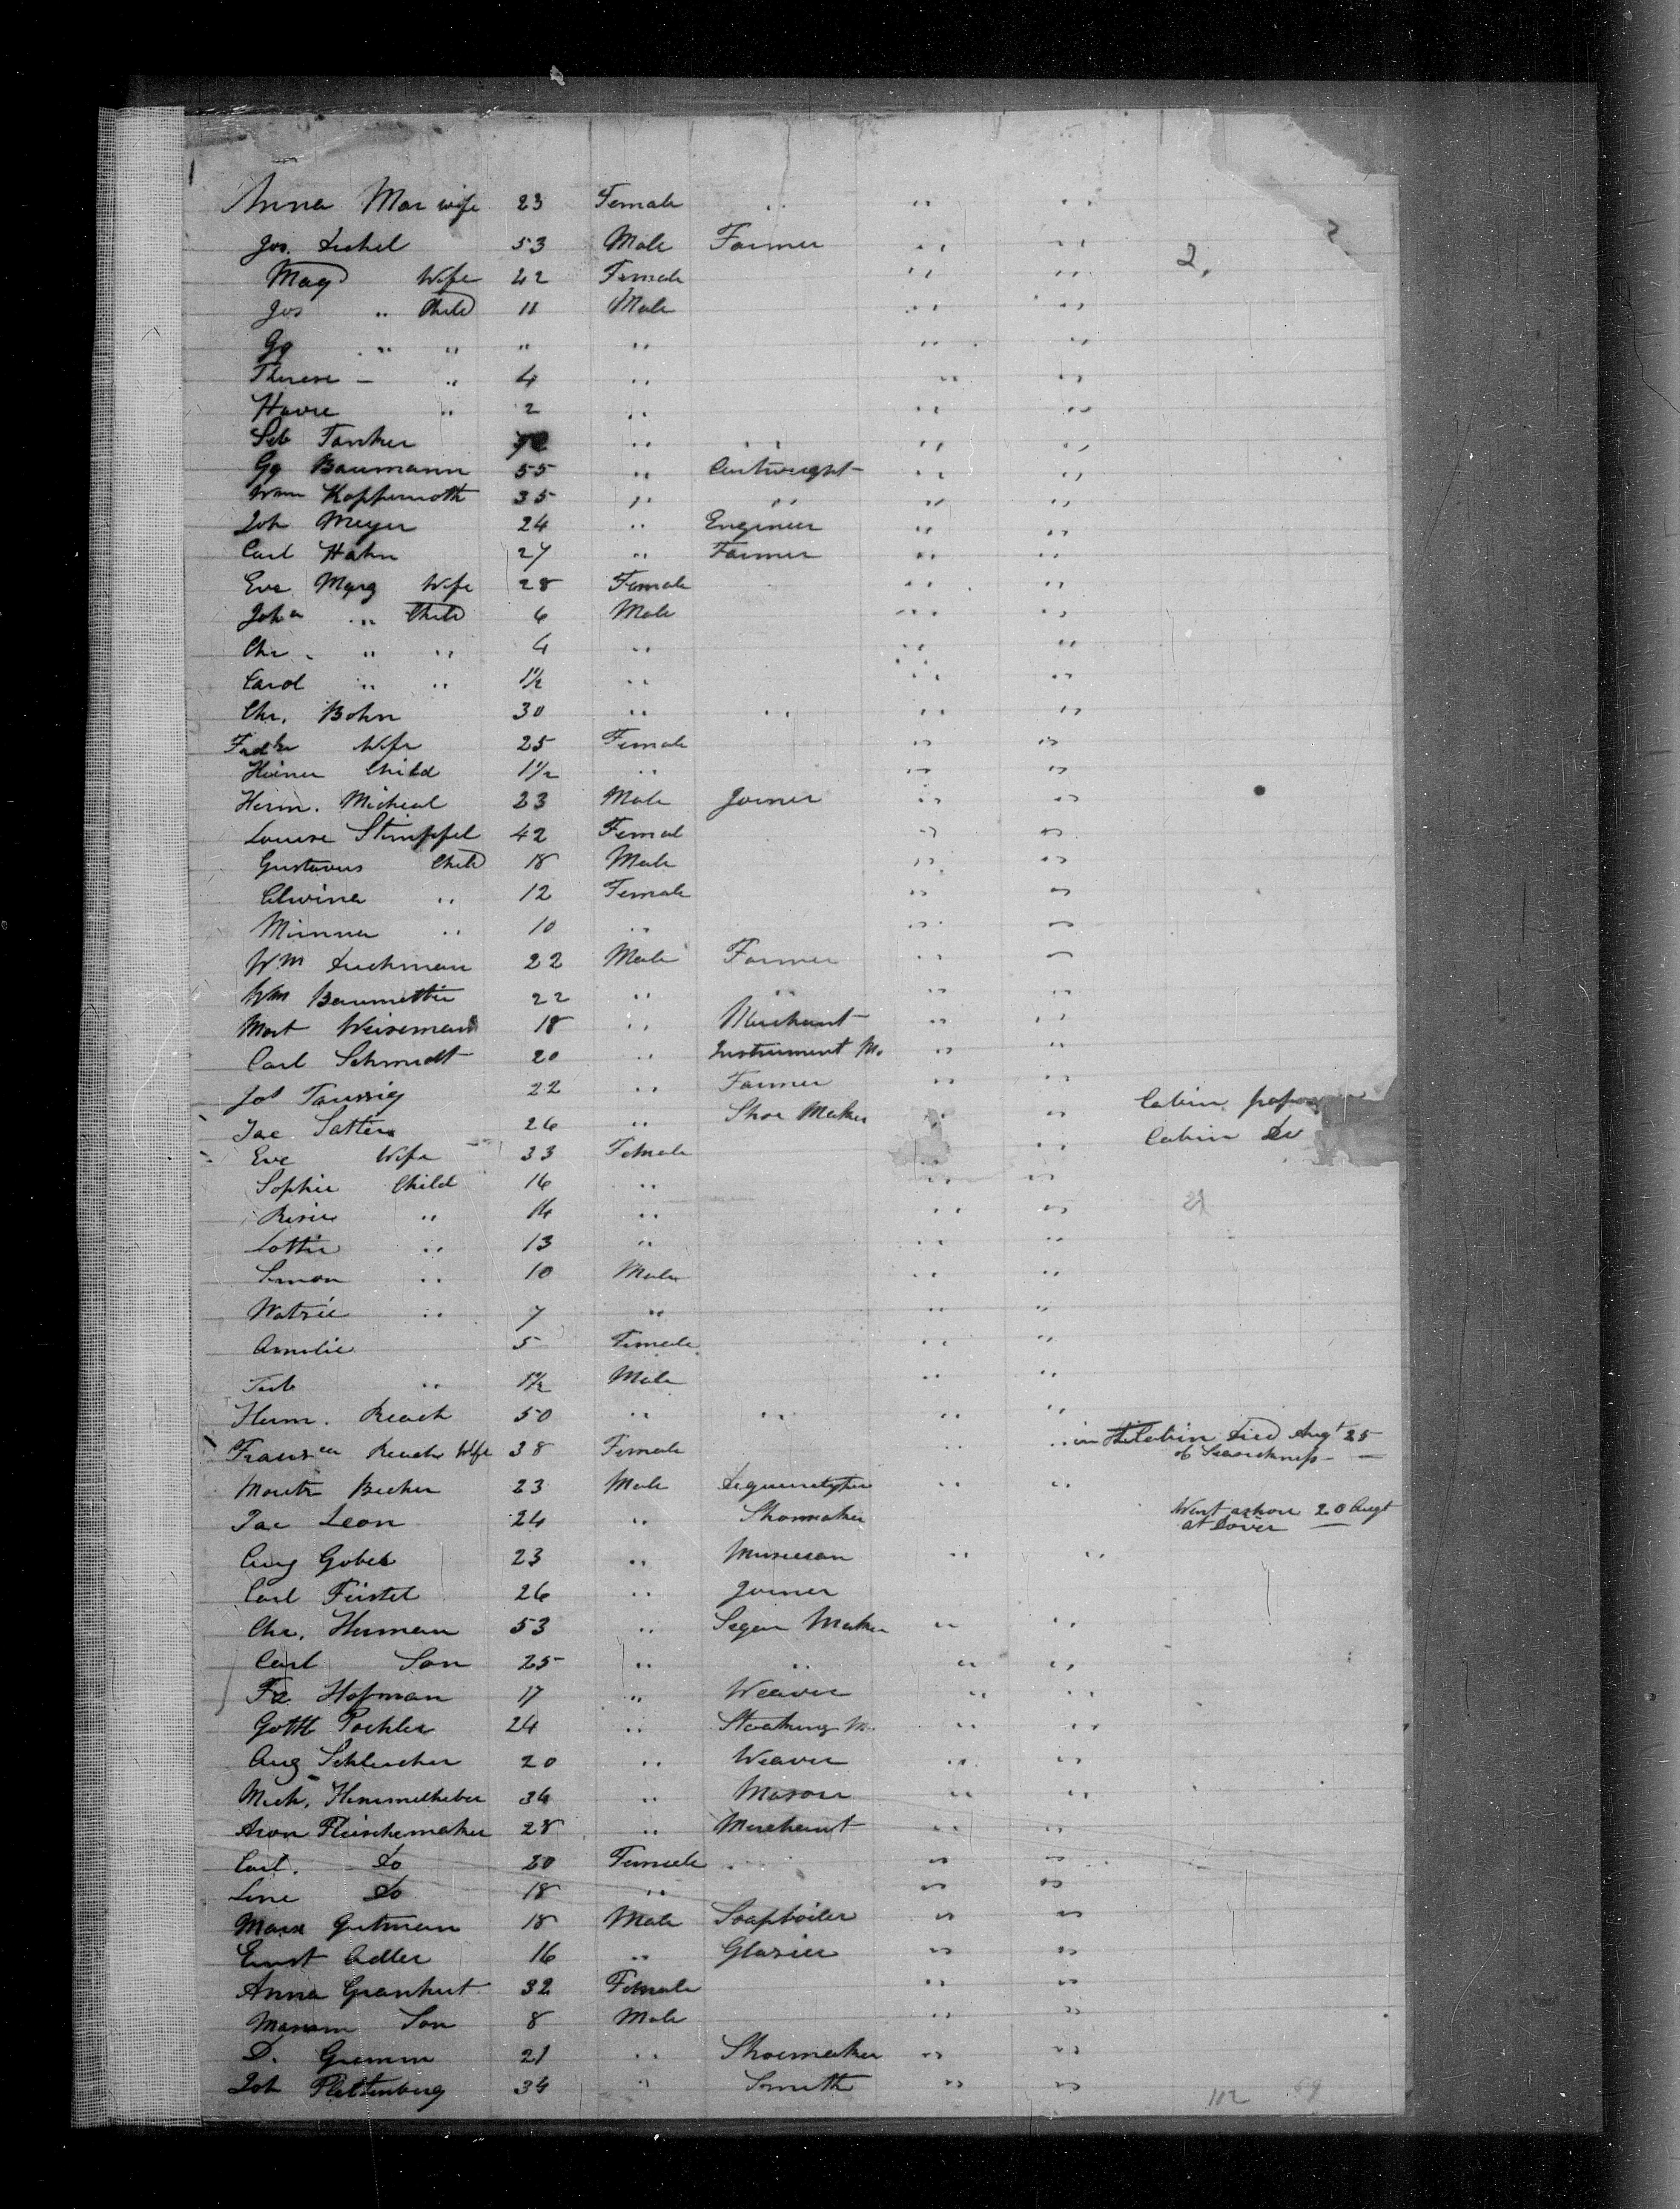 Anna Mar wife 23 Female " " "
2
Jos. Dichel 53 Male Farmer " " 2.
Mag Wife 42 Female " "
Jos " Child 11 Male " "
Gg " " " " " "
Therese — " 4 " " "
" 2 " " "
Seb " " " "
Gg Baumann 55 " Cartwright " "
Wm Koppernoth 35 " " " "
Joh Meyer 24 " Engineer " "
Carl Hahn 27 " Farmer " "
Eva Marg Wife 28 Female " "
Joha " Child 6 Male " "
Chr. " " 4 " " "
Carol " " 1½ " " "
Chr. Bohn 30 " " " "
Fredke Wife 25 Female " "
Child 1½ " " "
Herm. Micheal 23 Male Joiner " "
Louise Stimpfel 42 Femal " "
Gustavus Child 18 Male " "
Elwina " 12 Female " "
Minna " 10 " " "
Wm Dickman 22 Male Farmer " "
Wm 22 " " " "
Mort Weiseman 18 " Merchant " "
Carl Schmidt 20 " Instrument M. " "
Jos Taussig 22 " Farmer " "
Jac Satter 26 " Shoe Maker " " Cabin
Eve Wife 33 Female " " Cabin Do
Sophie Child 16 " " "
Rosie " 14 " " "
Lottie " 13 " " "
Simon " 10 Male " "
" 7 " " "
Amelie 5 Female " "
" 1½ Male " "
Herm. Reach 50 " " " "
Reach Wife 38 Female " " in the Cabin died Augt 25
of Seasickness —
Moritz Becher 23 Male " "
Jac Leon 24 " Shoemaker Went ashore 20 Augt
at Dover —
Aug Gobel 23 " Musician " "
Carl Fürstel 26 " Joiner
Chr. Herman 53 " Segar Maker " "
Carl Son 25 " " " "
Fr. Hofman 17 " Weaver " "
Gottl Pochler 24 " Stocking M. " "
Aug Schleicher 20 " Weaver " "
Mich. Himmelheber 34 " Mason " "
Aron Fleischemaker 28 " Merchant " "
Carl. Do 20 Female " "
Line Do 18 " " "
Marx Gutman 18 Male Soapboiler " "
Ernst Adler 16 " Glasier " "
Anna Granhut 32 Female " "
Son 8 Male " "
D. Grimm 21 " Shoemaker " "
Joh Plettenberg 34 " Smith " "
112 59